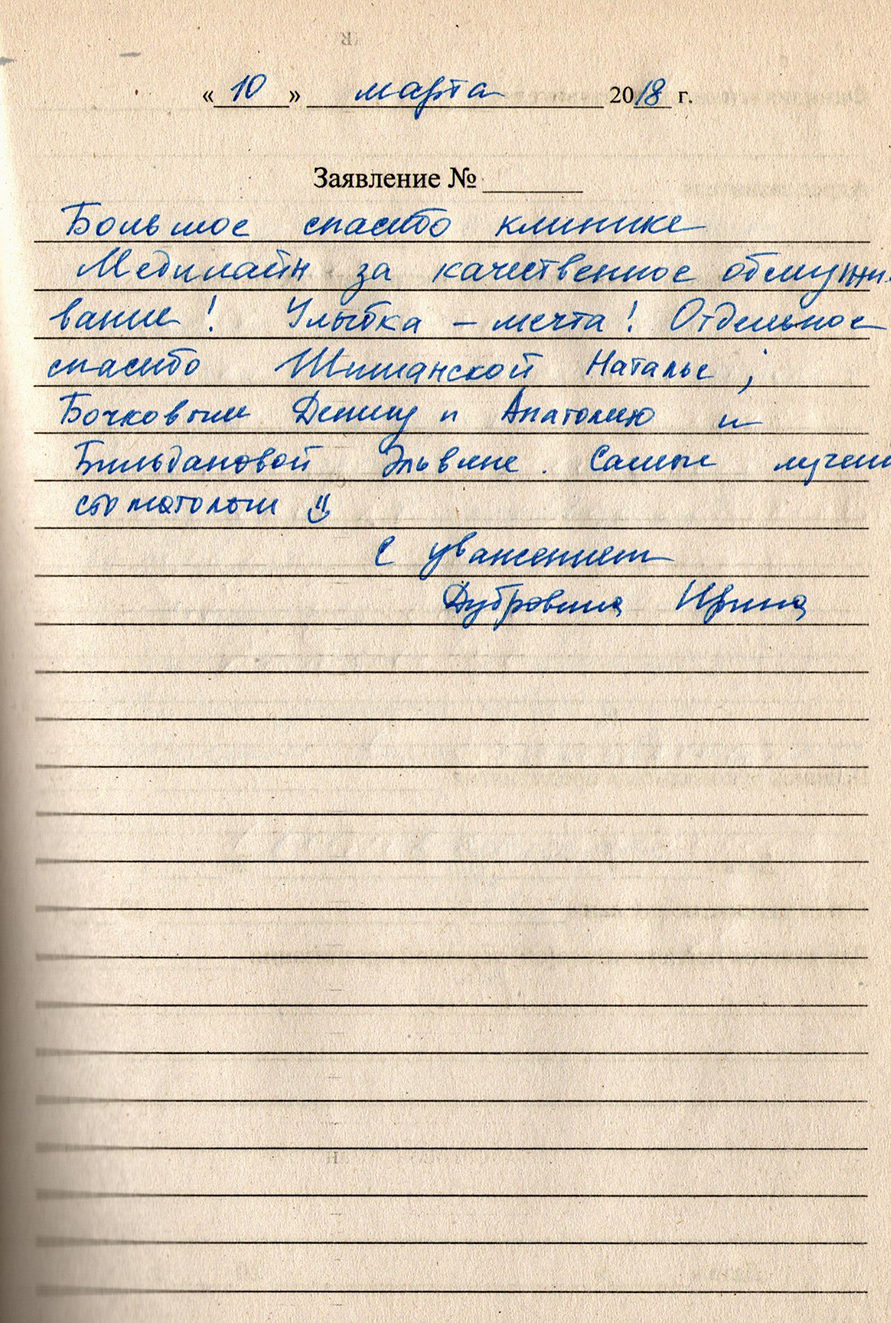 «10» марта 2018 г.
Заявление № ______
Большое спасибо клинике
Медилайн за качественное обслужи-
вание! Улыбка – мечта! Отдельное
спасибо Шишанской Наталье;
Бочковым Денису и Анатолию и
Бильдановой Эльвине. Самые лучшие
стоматологи
С уважением
Дубровина Ирина